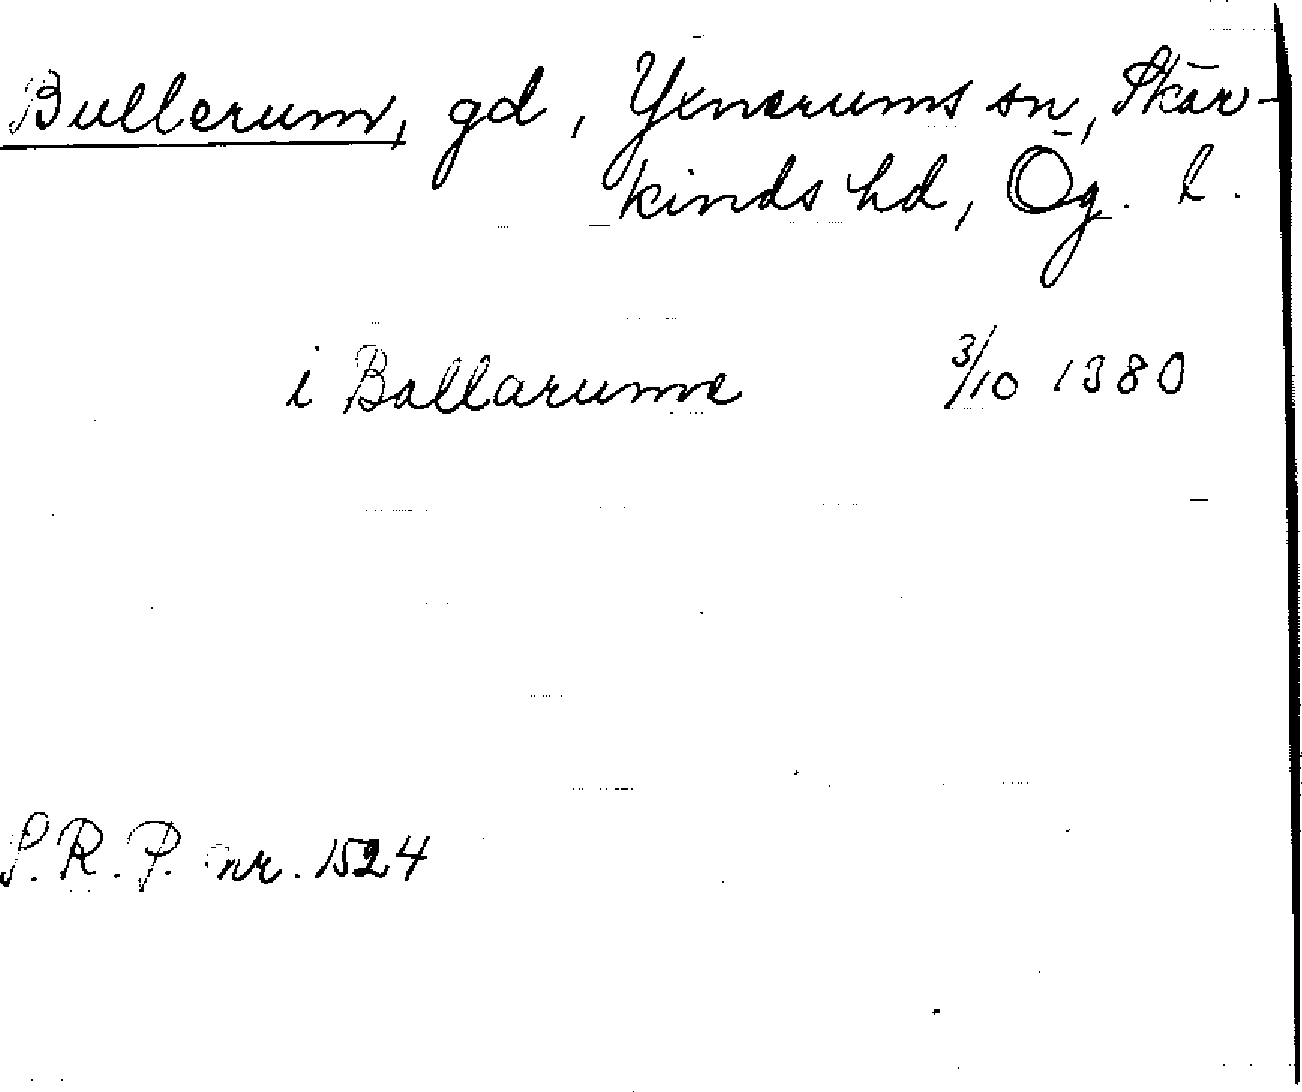 Bullerum, gd, Yxnerums sn, Skär-
kinds hd, Ög. l.
i Bollarume 3/10 1380
S.R.P. nr. 1524